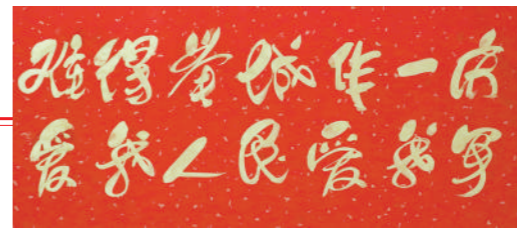 难得城作一
爱我人民爱我军